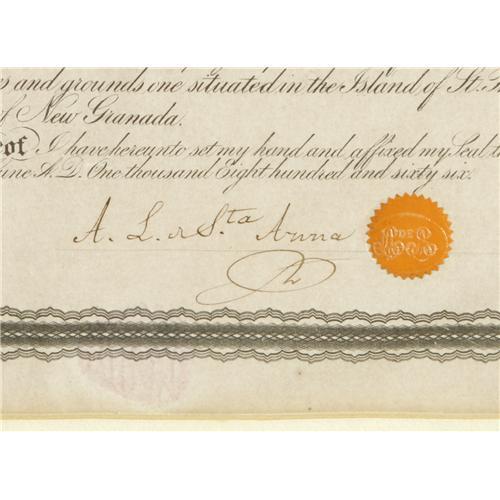 and grounds one situated in the Island of St.
of New Granada.
I have hereunto set my hand and affixed my Seal
A.D. One thousand Eight hundred and sixty six.
A. L. de Sta Anna